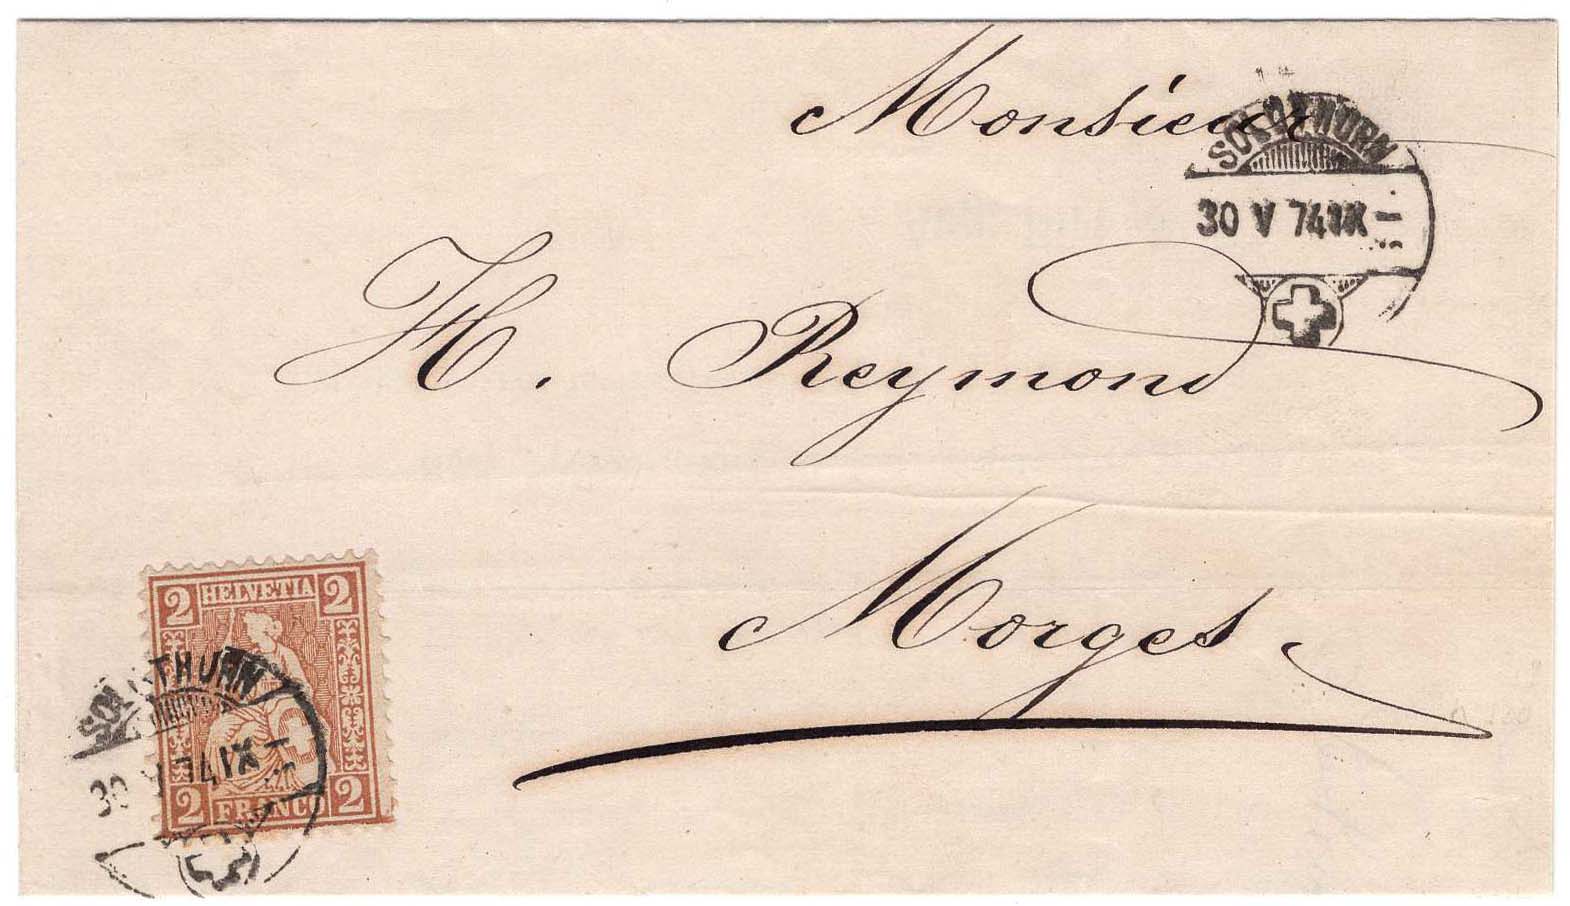 Monsieur
SOLOTHURN
30 V 74 IX -
H. Reymond
Morges
2 HELVETIA 2
SOLOTHURN
30 V 74 IX -
2 FRANCO 2